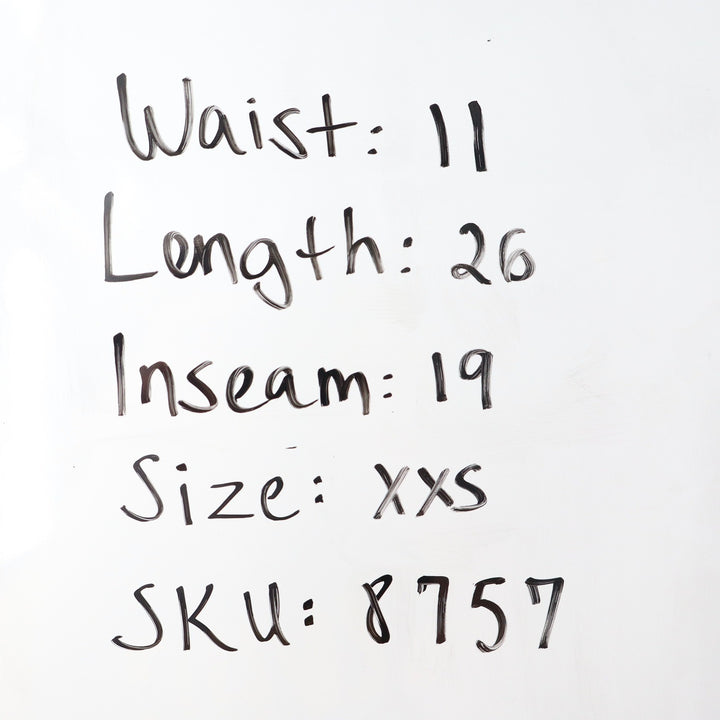 Waist: 11
Length: 26
Inseam: 19
Size: xxs
SKU: 8757